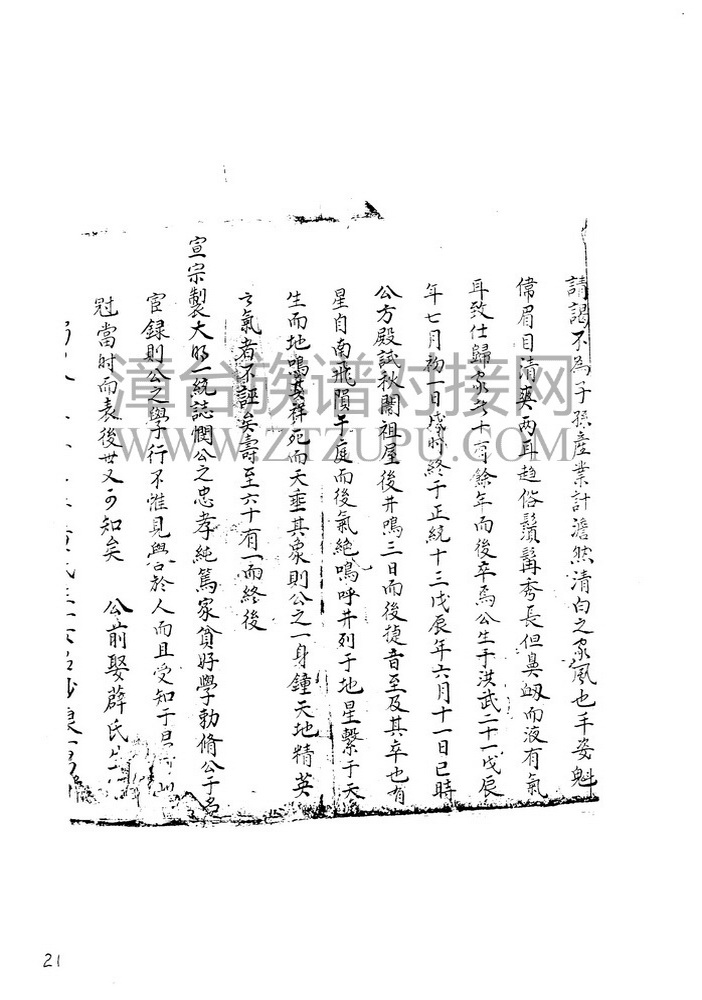 請謁不為子孫產業計澹然清白之家風也丰姿魁
偉眉目清爽兩耳趋俗鬚髯秀長但鼻衂而液有氣
耳致仕歸家六十有餘年而後卒焉公生于洪武二十一戊辰
年七月初一日戌時終于正統十三戊辰年六月十一日巳時
公方殿試秋闈祖屋後井鳴三日而後捷音至及其卒也有
星自南飛隕于庭而後氣絕嗚呼井列于地星繫于天
生而地鳴其祥死而天垂其象則公之一身鐘天地精英
之氣者不誣矣壽至六十有一而終後
宣宗製大明一統誌憫公之忠孝純篤家貧好學勅脩公于名
宦録則公之學行不惟見與於人而且受知于
冠當时而表後世又可知矣 公前娶薛氏生
漳台族谱对接网
WWW.ZTZUPU.COM
21